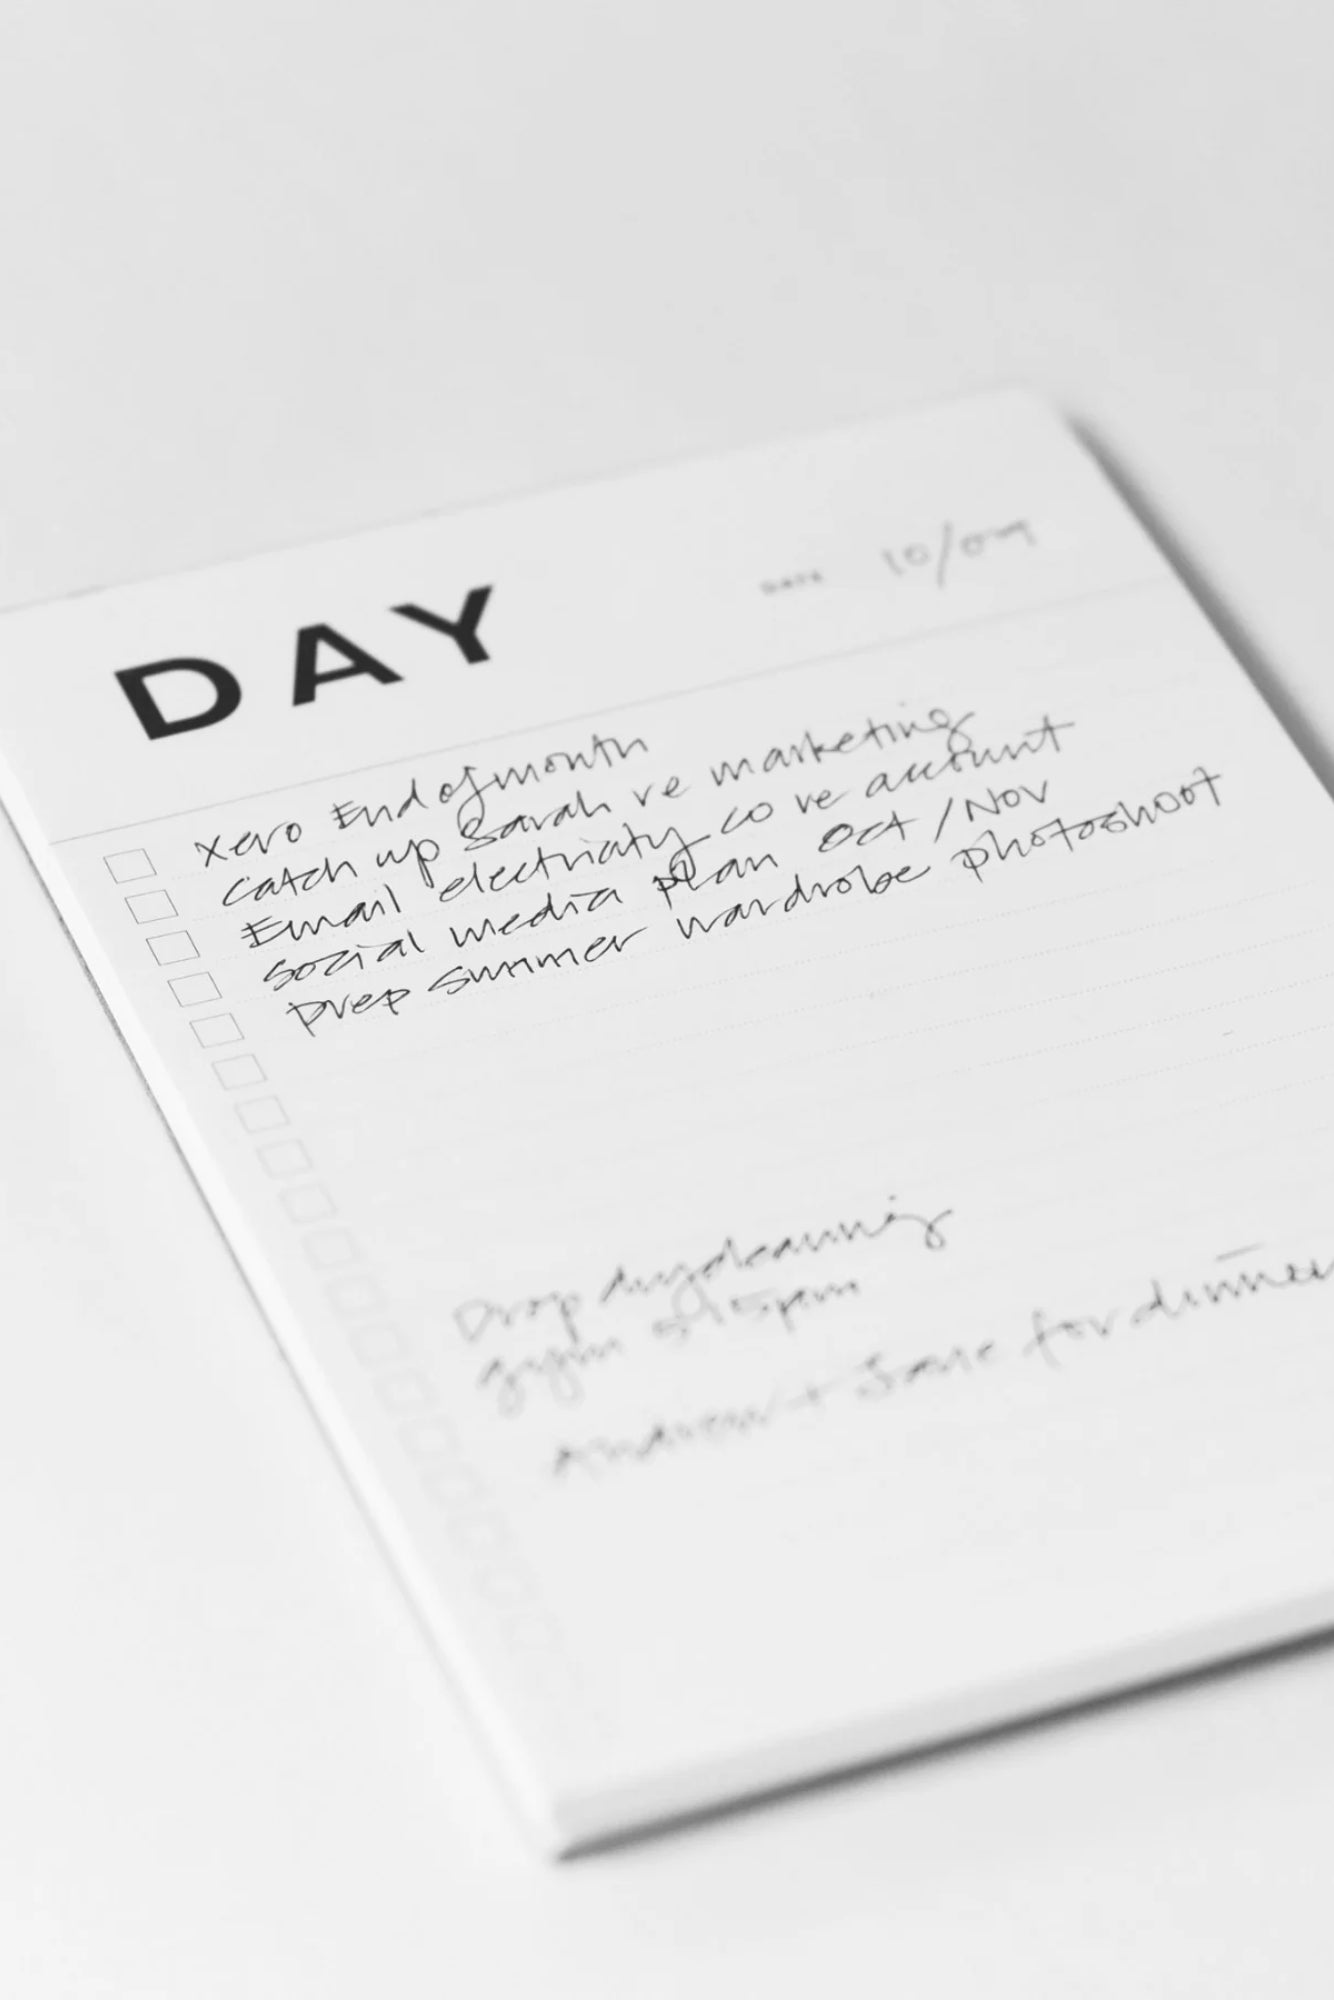 DAY
DATE 10/09
Xero End of month
Catch up Sarah re marketing
Email electricity co re account
Social media plan Oct/Nov
Prep summer wardrobe photoshoot
Drop drycleaning
gym 5:15pm
Andrew + Jane for dinner